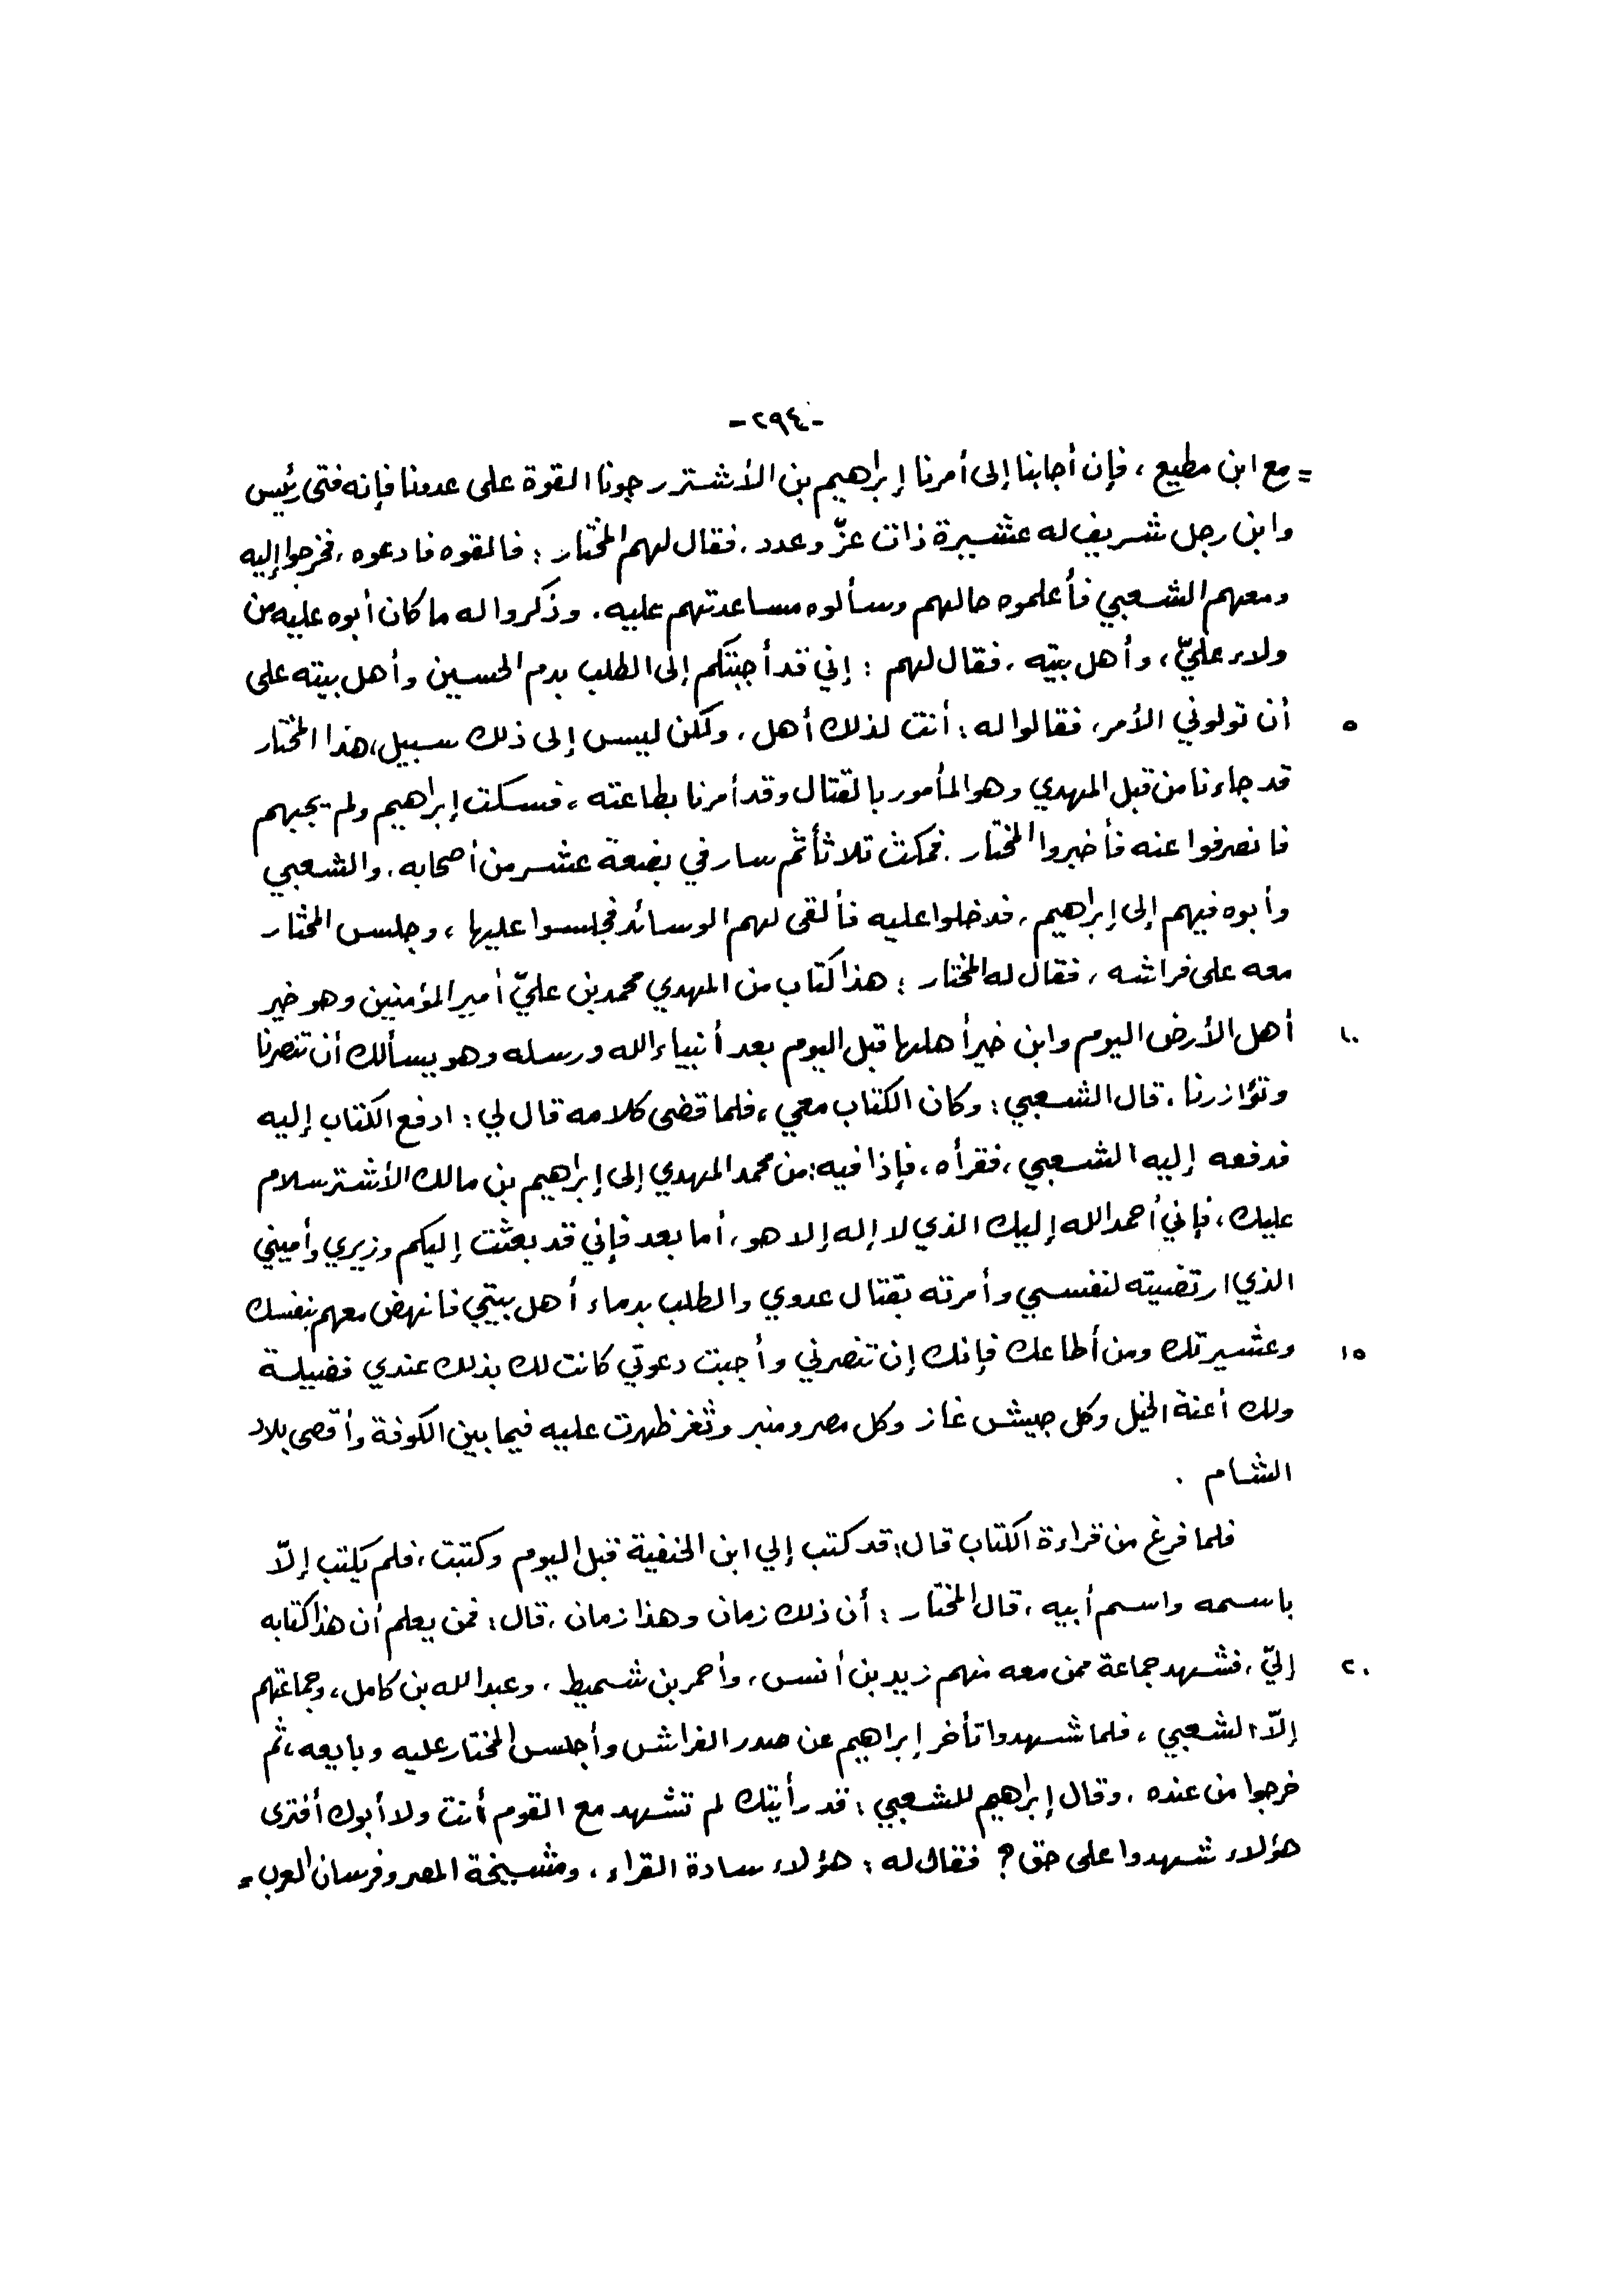 -٢٩٤-
= مع ابن مطيع ، فإن أجابنا إلى أمرنا إبراهيم بن الأشتر رجونا القوة على عدونا فإنه فتى رئيس
وابن رجل شريف له عشيرة ذات عزّ وعدد . فقال لهم المختار : فالقوه فادعوه ، فخرجوا إليه
ومعهم الشعبي فأعلموه حالهم وسألوه مساعدتهم عليه . وذكروا له ما كان أبوه عليه من
ولاء عليّ ، وأهل بيته . فقال لهم : إني قد أجبتكم إلى الطلب بدم الحسين وأهل بيته على
٥ أن تولوني الأمر ، فقالوا له : أنت لذلك أهل ، ولكن ليس إلى ذلك سبيل ، هذا المختار
قد جاءنا من قبل المهدي وهو المأمور بالقتال وقد أمرنا بطاعته ، فسكت إبراهيم ولم يجبهم
فانصرفوا عنه فأخبروا المختار . فمكث ثلاثاً ثم سار في بضعة عشر من أصحابه . والشعبي
وأبوه فيهم إلى إبراهيم ، فدخلوا عليه فألقى لهم الوسائد فجلسوا عليها ، وجلس المختار
معه على فراشه ، فقال له المختار : هذا كتاب من المهدي محمد بن عليّ أمير المؤمنين وهو خير
١٠ أهل الأرض اليوم وابن خير أهلها قبل اليوم بعد أنبياء الله ورسله وهو يسألك أن تنصرنا
وتؤازرنا . قال الشعبي : وكان الكتاب معي ، فلما قضى كلامه قال لي : ادفع الكتاب إليه
فدفعه إليه الشعبي ، فقرأه ، فإذا فيه : من محمد المهدي إلى إبراهيم بن مالك الأشتر سلام
عليك ، فإني أحمد الله إليك الذي لا إله إلا هو ، أما بعد فإني قد بعثت إليكم وزيري وأميني
الذي ارتضيته لنفسي وأمرته بقتال عدوي والطلب بدماء أهل بيتي فانهض معهم بنفسك
١٥ وعشيرتك ومن أطاعك فإنك إن تنصرني وأجبت دعوتي كانت لك بذلك عندي فضيلة
ولك أعنة الخيل وكل جيش غاز وكل مصر ومنبر وثغر ظهرت عليه فيما بين الكوفة وأقصى بلاد
الشام .
فلما فرغ من قراءة الكتاب قال : قد كتب إلي ابن الحنفية قبل اليوم وكتبت ، فلم يكتب إلّا
باسمه واسم أبيه ، قال المختار : أن ذلك زمان وهذا زمان ، قال : فمن يعلم أن هذا كتابه
٢٠ إليّ ، فشهد جماعة ممن معه منهم زيد بن أنس ، وأحمر بن شميط ، وعبد الله بن كامل ، وجماعتهم
إلّا الشعبي ، فلما شهدوا تأخر إبراهيم عن صدر الفراش وأجلس المختار عليه وبايعه ، ثم
خرجوا من عنده . وقال إبراهيم للشعبي : قد رأيتك لم تشهد مع القوم أنت ولا أبوك أفترى
هؤلاء شهدوا على حق ؟ فقال له : هؤلاء سادة القراء ، ومشيخة المصر وفرسان العرب =